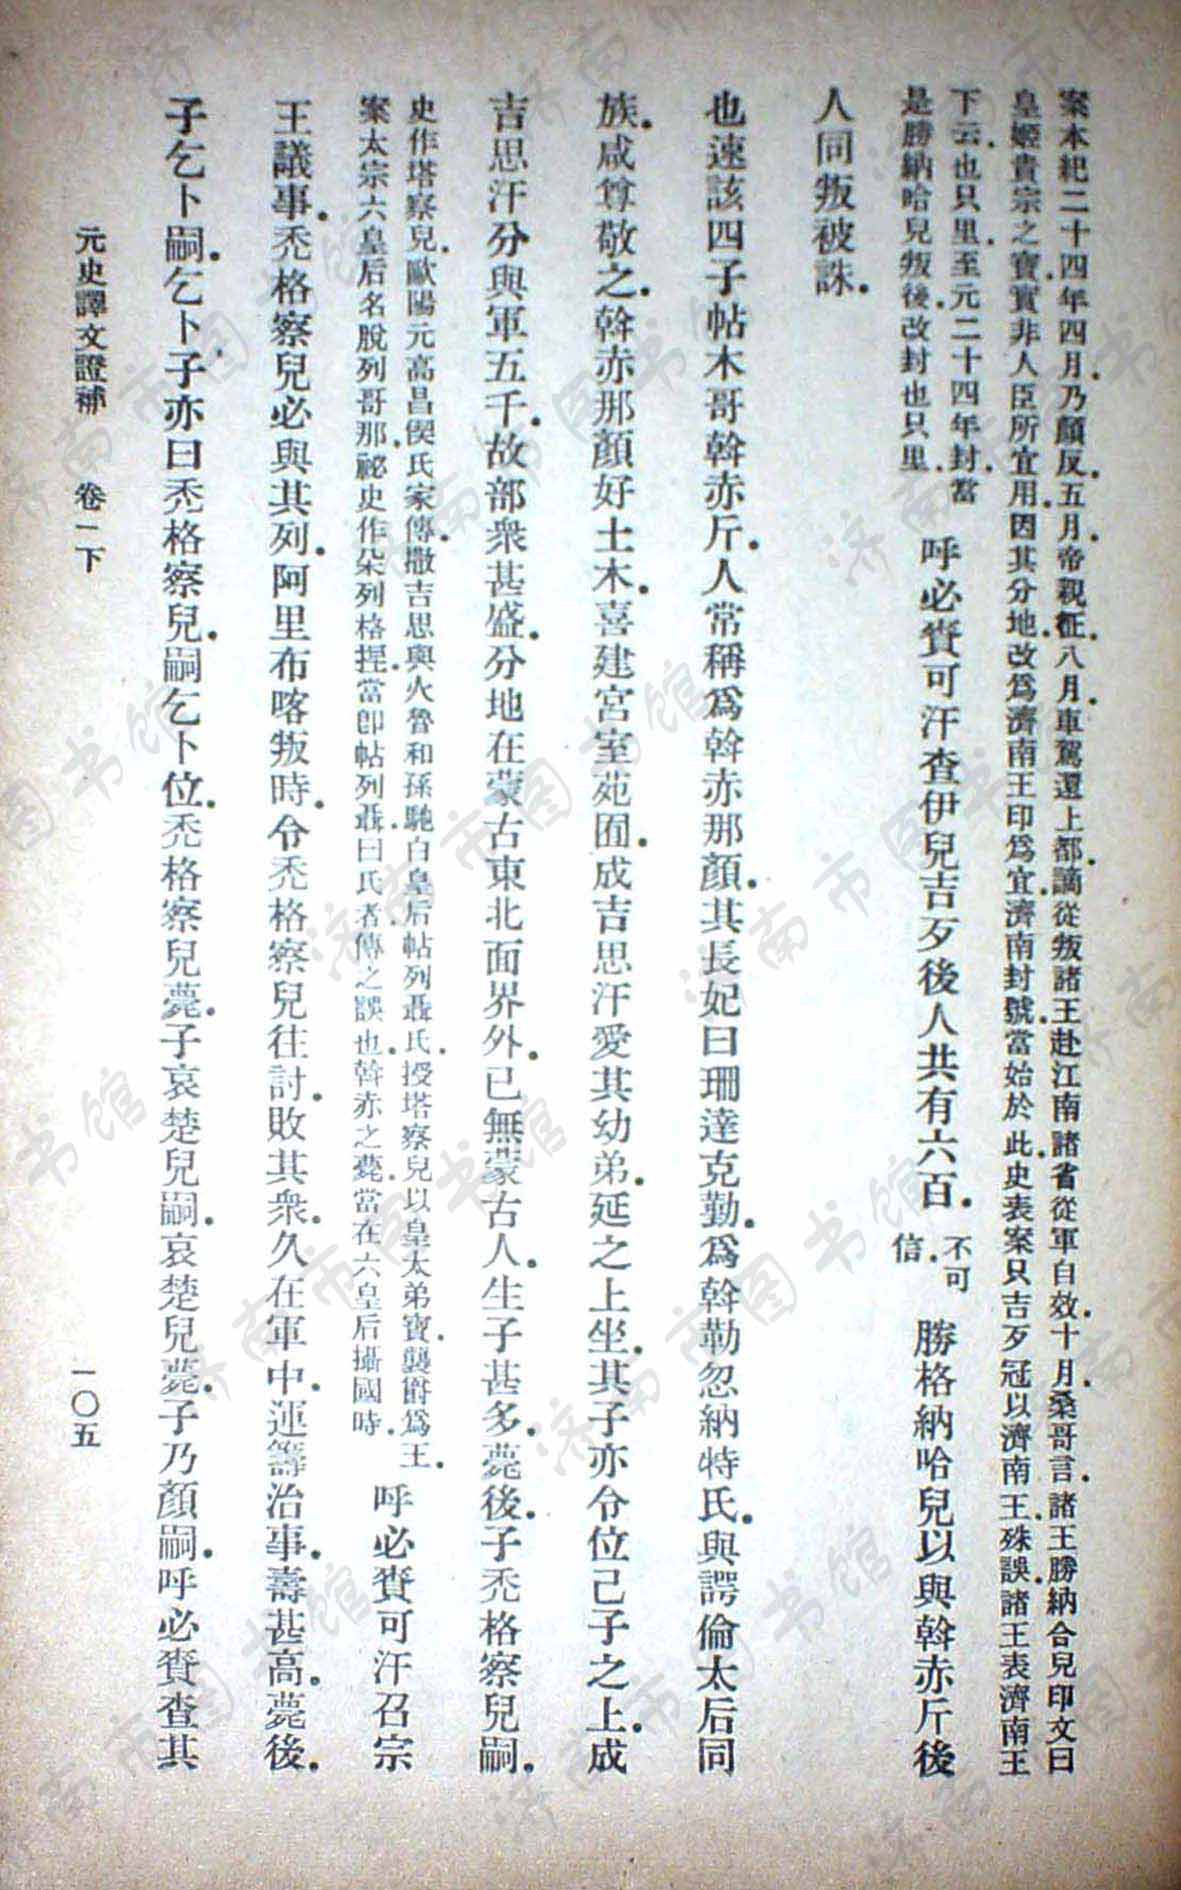 案本紀二十四年四月.乃顏反.五月.帝親征.八月.車駕還上都.謫從叛諸王赴江南諸省從軍自效.十月.桑哥言.諸王勝納合兒印文曰
皇姬貴宗之寶.寶非人臣所宜用.因其分地.改爲濟南王印爲宜.濟南封號.當始於此.史表案只吉歹冠以濟南王.殊誤.諸王表濟南王
下云.也只里.至元二十四年封.當
是勝納哈兒叛後.改封也只里.
呼必賚可汗查伊兒吉歹後人共有六百.
不可
信.
勝格納哈兒以與斡赤斤後
人同叛被誅.
也速該四子帖木哥斡赤斤.人常稱爲斡赤那顏.其長妃曰珊達克勤.爲斡勒忽納特氏.與諤倫太后同
族.咸尊敬之.斡赤那顏好土木.喜建宮室苑囿.成吉思汗愛其幼弟.延之上坐.其子亦令位己子之上.成
吉思汗分與軍五千.故部衆甚盛.分地在蒙古東北面界外.已無蒙古人.生子甚多.薨後.子禿格察兒嗣.
史作塔察兒.歐陽元高昌偰氏家傳.撒吉思與火魯和孫馳白皇后帖列聶氏.授塔察兒以皇太弟寶.襲爵爲王.
案太宗六皇后名脫列哥那.祕史作朵列格捏.當卽帖列聶.曰氏者.傳之誤也.斡赤之薨.當在六皇后攝國時.
呼必賚可汗召宗
王議事.禿格察兒必與其列.阿里布喀叛時.令禿格察兒往討.敗其衆.久在軍中.運籌治事.壽甚高.薨後.
子乞卜嗣.乞卜子亦曰禿格察兒.嗣乞卜位.禿格察兒薨.子哀楚兒嗣.哀楚兒薨.子乃顏嗣.呼必賚查其
元史譯文證補 卷一下
一〇五
济南市图书馆